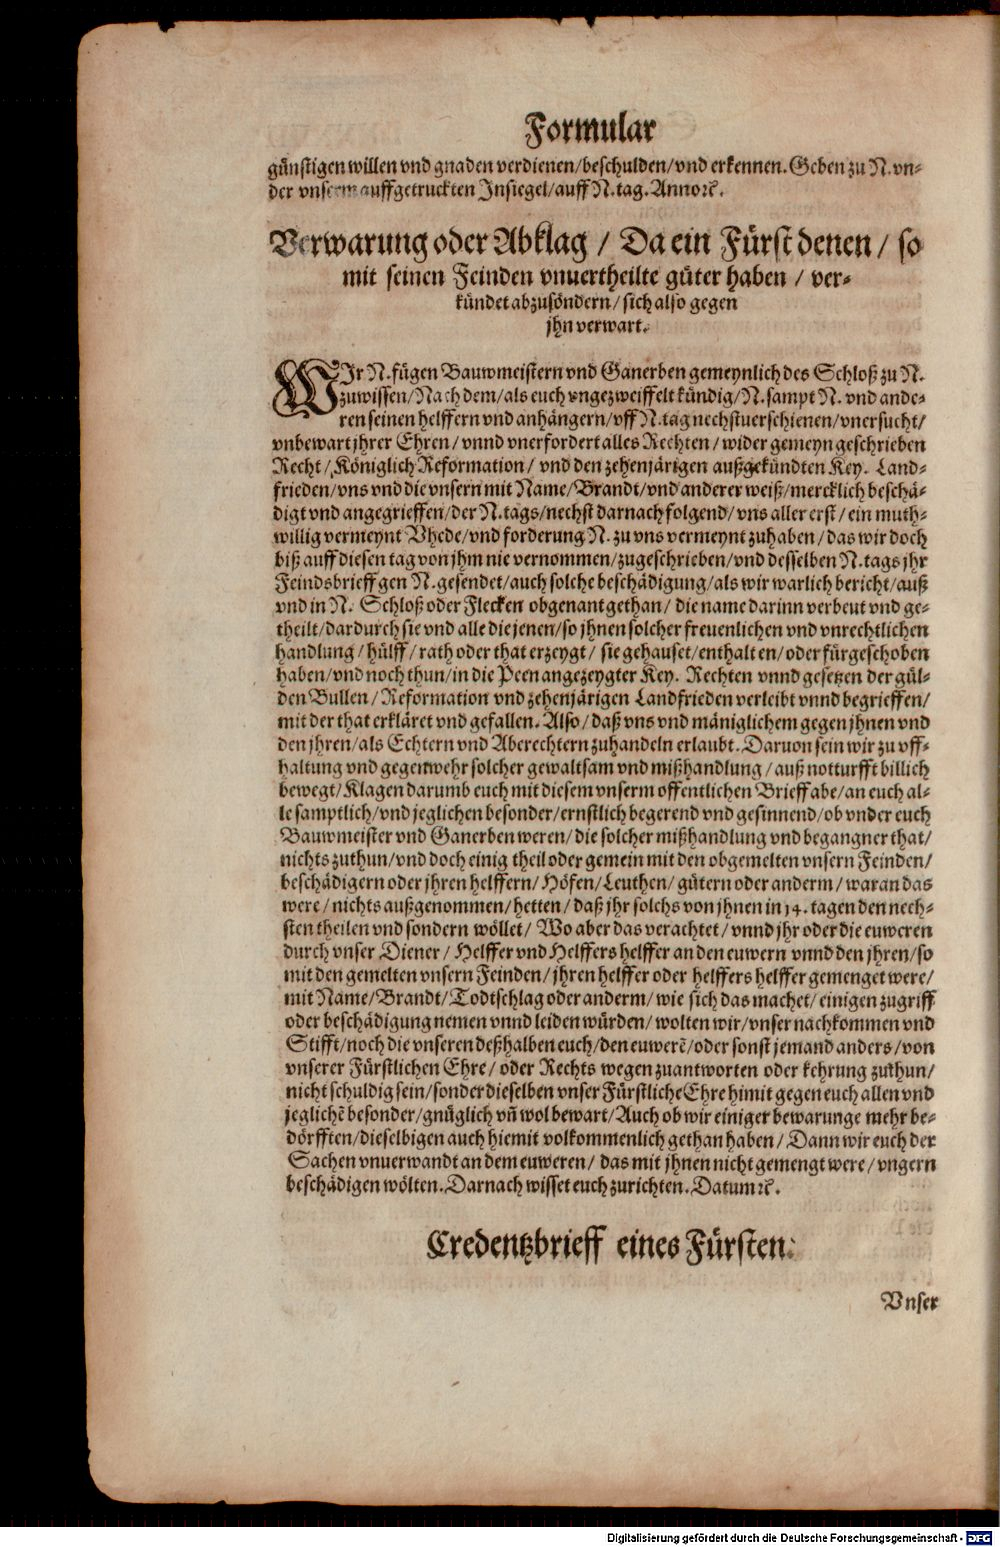 Formular
günstigen willen vnd gnaden verdienen/beschulden/vnd erkennen. Geben zu N. vn-
der vnserm auffgetruckten Insiegel/auff N. tag. Anno ꝛc.
Verwarung oder Abklag / Da ein Fürst denen / so
mit seinen Feinden vnuertheilte güter haben / ver-
kündet abzusöndern/ sich also gegen
jhn verwart.
WIr N. fügen Bauwmeistern vnd Ganerben gemeynlich des Schloß zu N.
zuwissen/Nach dem/als euch vngezweiffelt kündig/N. sampt N. vnd ande-
ren seinen helffern vnd anhängern/vff N. tag nechstuerschienen/vnersucht/
vnbewart jhrer Ehren/ vnnd vnerfordert alles Rechten/ wider gemeyn geschrieben
Recht/ Königlich Reformation/ vnd den zehenjärigen außgekündten Key. Land-
frieden/vns vnd die vnsern mit Name/Brandt/vnd anderer weiß/mercklich beschä-
digt vnd angegrieffen/der N. tags/nechst darnach folgend/ vns aller erst/ ein muth-
willig vermeynt Vhede/vnd forderung N. zu vns vermeynt zuhaben/das wir doch
biß auff diesen tag von jhm nie vernommen/zugeschrieben/vnd desselben N. tags jhr
Feindsbrieff gen N. gesendet/auch solche beschädigung/als wir warlich bericht/auß
vnd in N. Schloß oder Flecken obgenant gethan/ die name darinn verbeut vnd ge-
theilt/dardurch sie vnd alle die jenen/so jhnen solcher freuenlichen vnd vnrechtlichen
handlung/hülff/rath oder that erzeygt/ sie gehauset/enthalten/oder fürgeschoben
haben/vnd noch thun/in die Peen angezeygter Key. Rechten vnnd gesetzen der gül-
den Bullen/Reformation vnd zehenjärigen Landfrieden verleibt vnnd begrieffen/
mit der that erkläret vnd gefallen. Also/ daß vns vnd mäniglichem gegen jhnen vnd
den jhren/als Echtern vnd Aberechtern zuhandeln erlaubt. Daruon sein wir zu vff-
haltung vnd gegenwehr solcher gewaltsam vnd mißhandlung/auß notturfft billich
bewegt/Klagen darumb euch mit diesem vnserm offentlichen Brieff abe/an euch al-
le samptlich/vnd jeglichen besonder/ernstlich begerend vnd gesinnend/ob vnder euch
Bauwmeister vnd Ganerben weren/die solcher mißhandlung vnd begangner that/
nichts zuthun/vnd doch einig theil oder gemein mit den obgemelten vnsern Feinden/
beschädigern oder jhren helffern/Höfen/Leuthen/ gütern oder anderm/ waran das
were/nichts außgenommen/hetten/ daß jhr solchs von jhnen in 14. tagen den nech-
sten theilen vnd sondern wöllet/ Wo aber das verachtet/vnnd jhr oder die euweren
durch vnser Diener/ Helffer vnd Helffers helffer an den euwern vnnd den jhren/so
mit den gemelten vnsern Feinden/ jhren helffer oder helffers helffer gemenget were/
mit Name/Brandt/Todtschlag oder anderm/ wie sich das machet/einigen zugriff
oder beschädigung nemen vnnd leiden würden/ wolten wir/vnser nachkommen vnd
Stifft/noch die vnseren deßhalben euch/den euwerẽ/oder sonst jemand anders/von
vnserer Fürstlichen Ehre/ oder Rechts wegen zuantworten oder kehrung zuthun/
nicht schuldig sein/sonder dieselben vnser Fürstliche Ehre himit gegen euch allen vnd
jeglichẽ besonder/gnüglich vñ wol bewart/Auch ob wir einiger bewarunge mehr be-
dörfften/dieselbigen auch hiemit volkommenlich gethan haben/ Dann wir euch der
Sachen vnuerwandt an dem euweren/ das mit jhnen nicht gemengt were/ vngern
beschädigen wölten. Darnach wisset euch zurichten. Datum ꝛc.
Credentzbrieff eines Fürsten.
Vnser
Digitalisierung gefördert durch die Deutsche Forschungsgemeinschaft - DFG